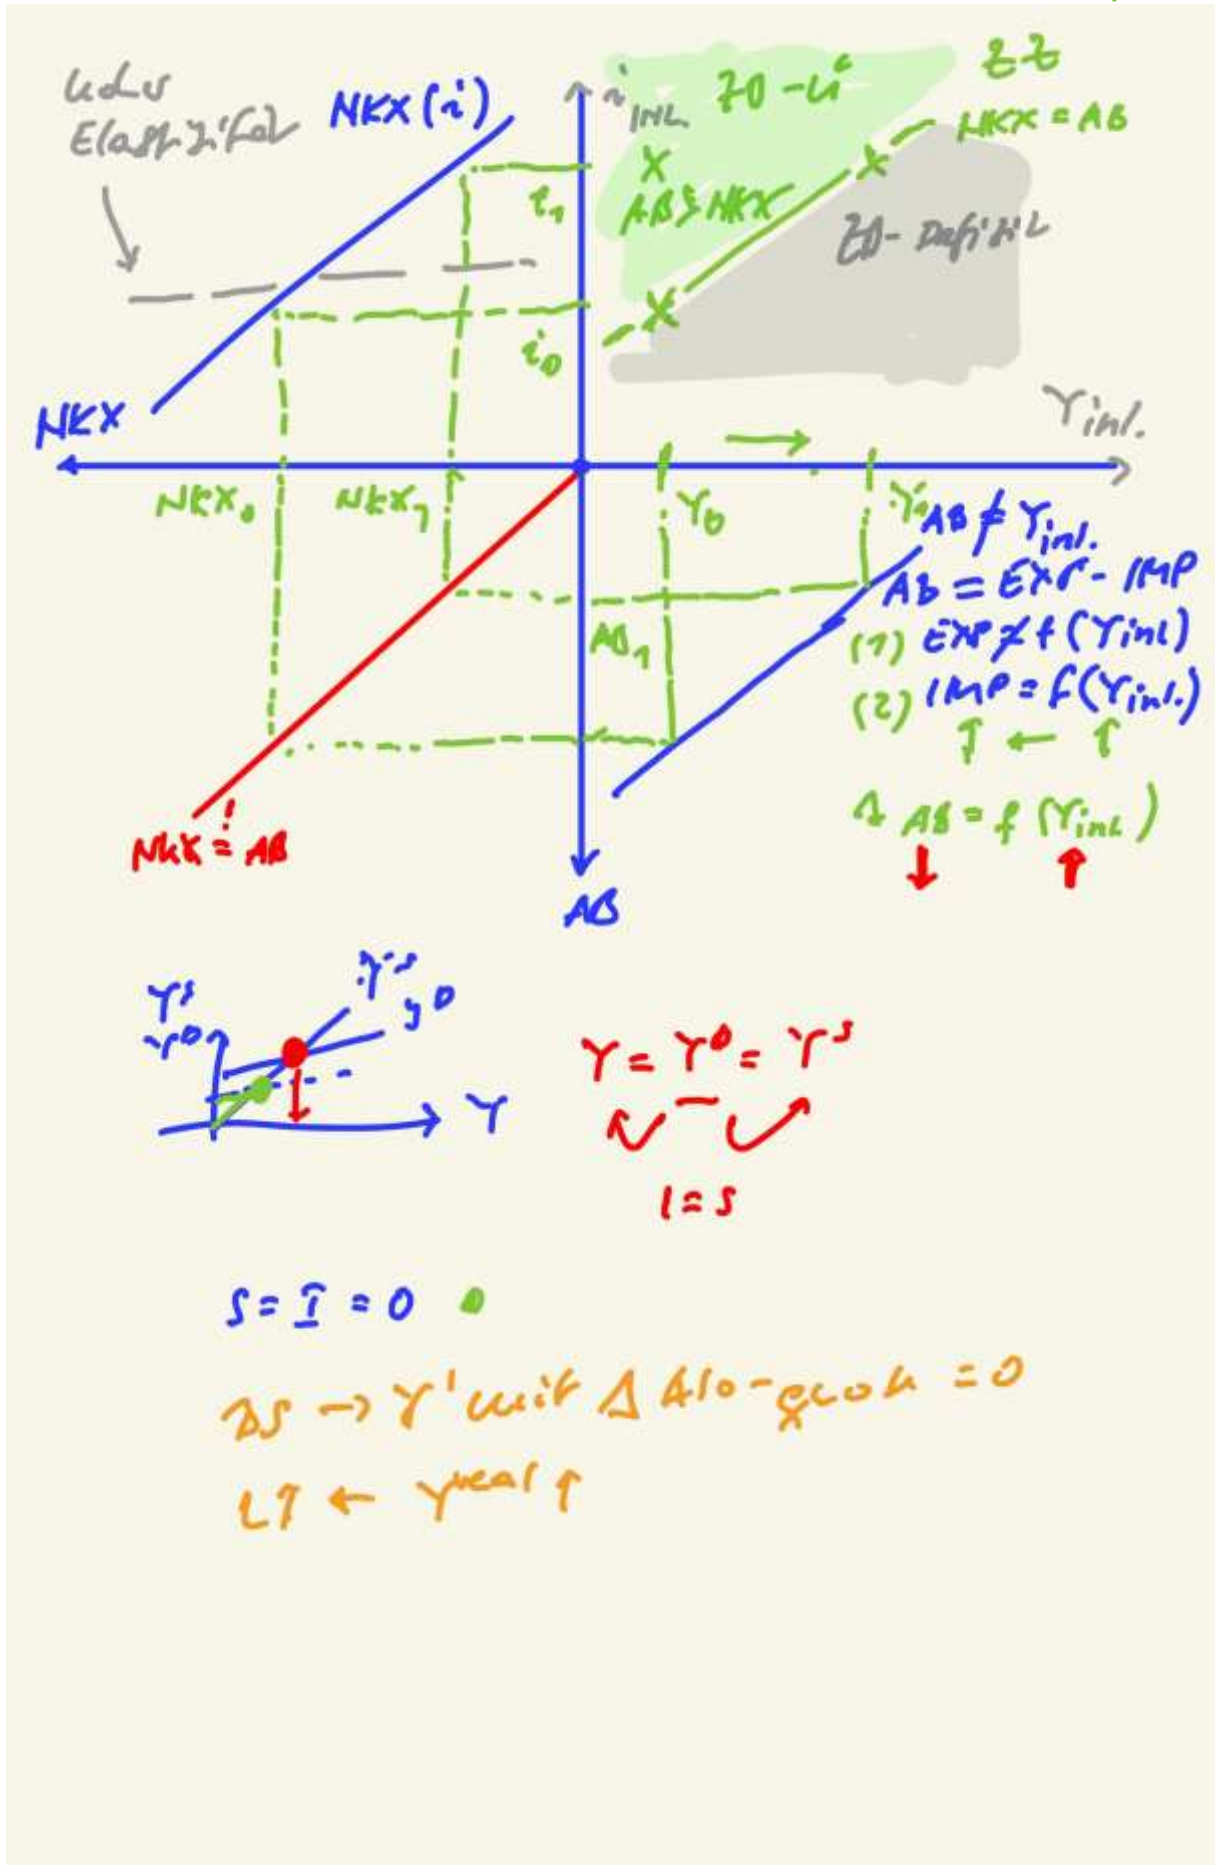 NKX (i)
i INL.
ZD - Ü
ZZ
NKX = AB
X
AB > NKX
ZD - Defizit
i₁
i₀
NKX
Yinl.
NKX₀
NKX₁
Y₀
Y₁
AB ≠ Yinl.
AB = EXP - IMP
(1) EXP ≠ f (Yinl)
(2) IMP = f (Yinl.)
↑ ← ↑
AB₁
AB = f (Yinl)
↓ ↑
NKX != AB
AB
Yˢ
Yᴰ
Yˢ
yᴰ
Y
Y = Yᴰ = Yˢ
I = S
S = I = 0
→ Y' mit Δ Alo-quote = 0
L↑ ← Yreal ↑